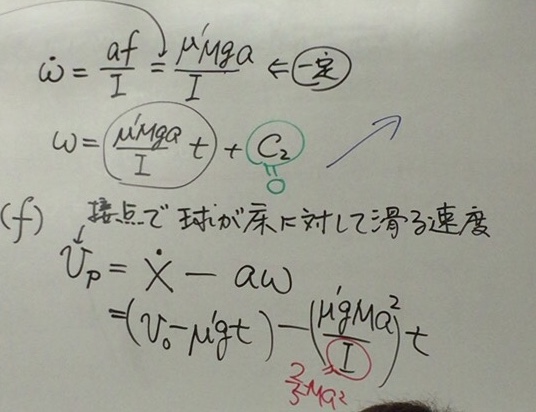 ω̇ = af/I = μ'Mga/I ⇐ 一定
ω = μ'Mga/I t + C₂
0
(f) 接点で球が床に対して滑る速度
v_p = Ẋ − aω
=(v₀−μ'gt)−(μ'gMa²/I)t
2/5Ma²